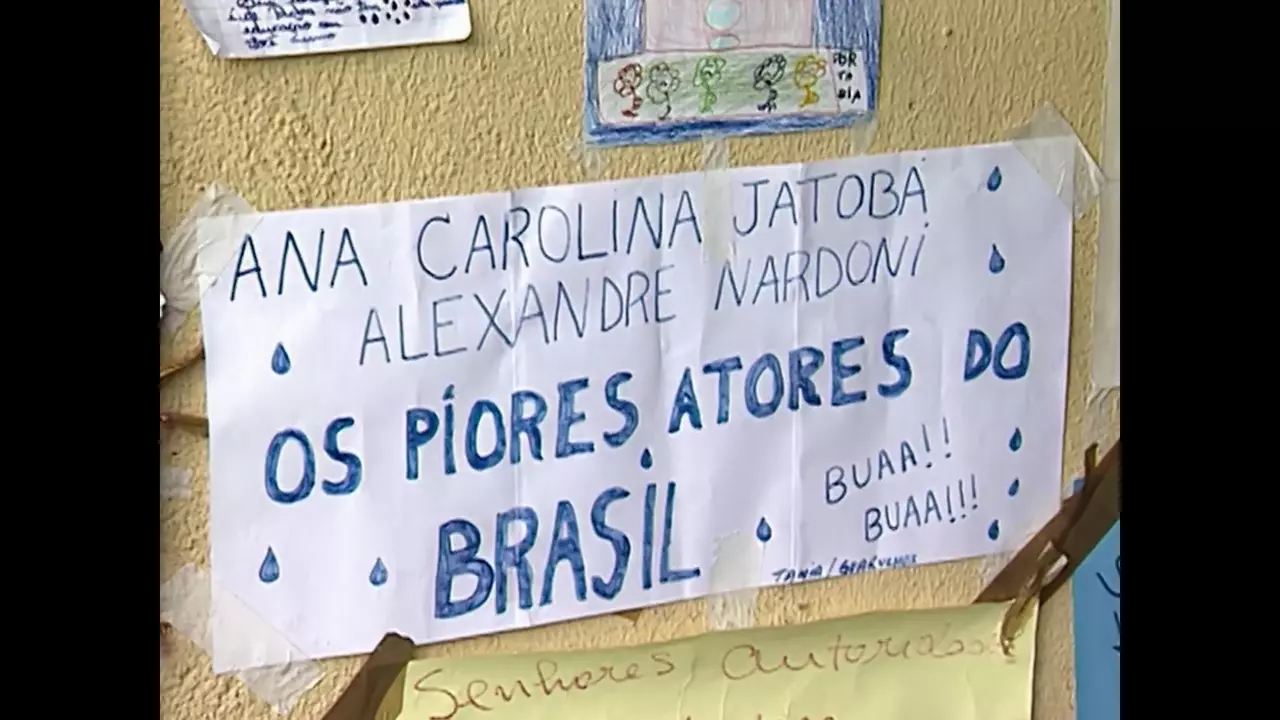 POR
TA
RIA
ANA CAROLINA JATOBÁ
ALEXANDRE NARDONI
OS PIORES ATORES DO
BRASIL
BUAA!!
BUAA!!!
TANIA/
Senhores autoridades